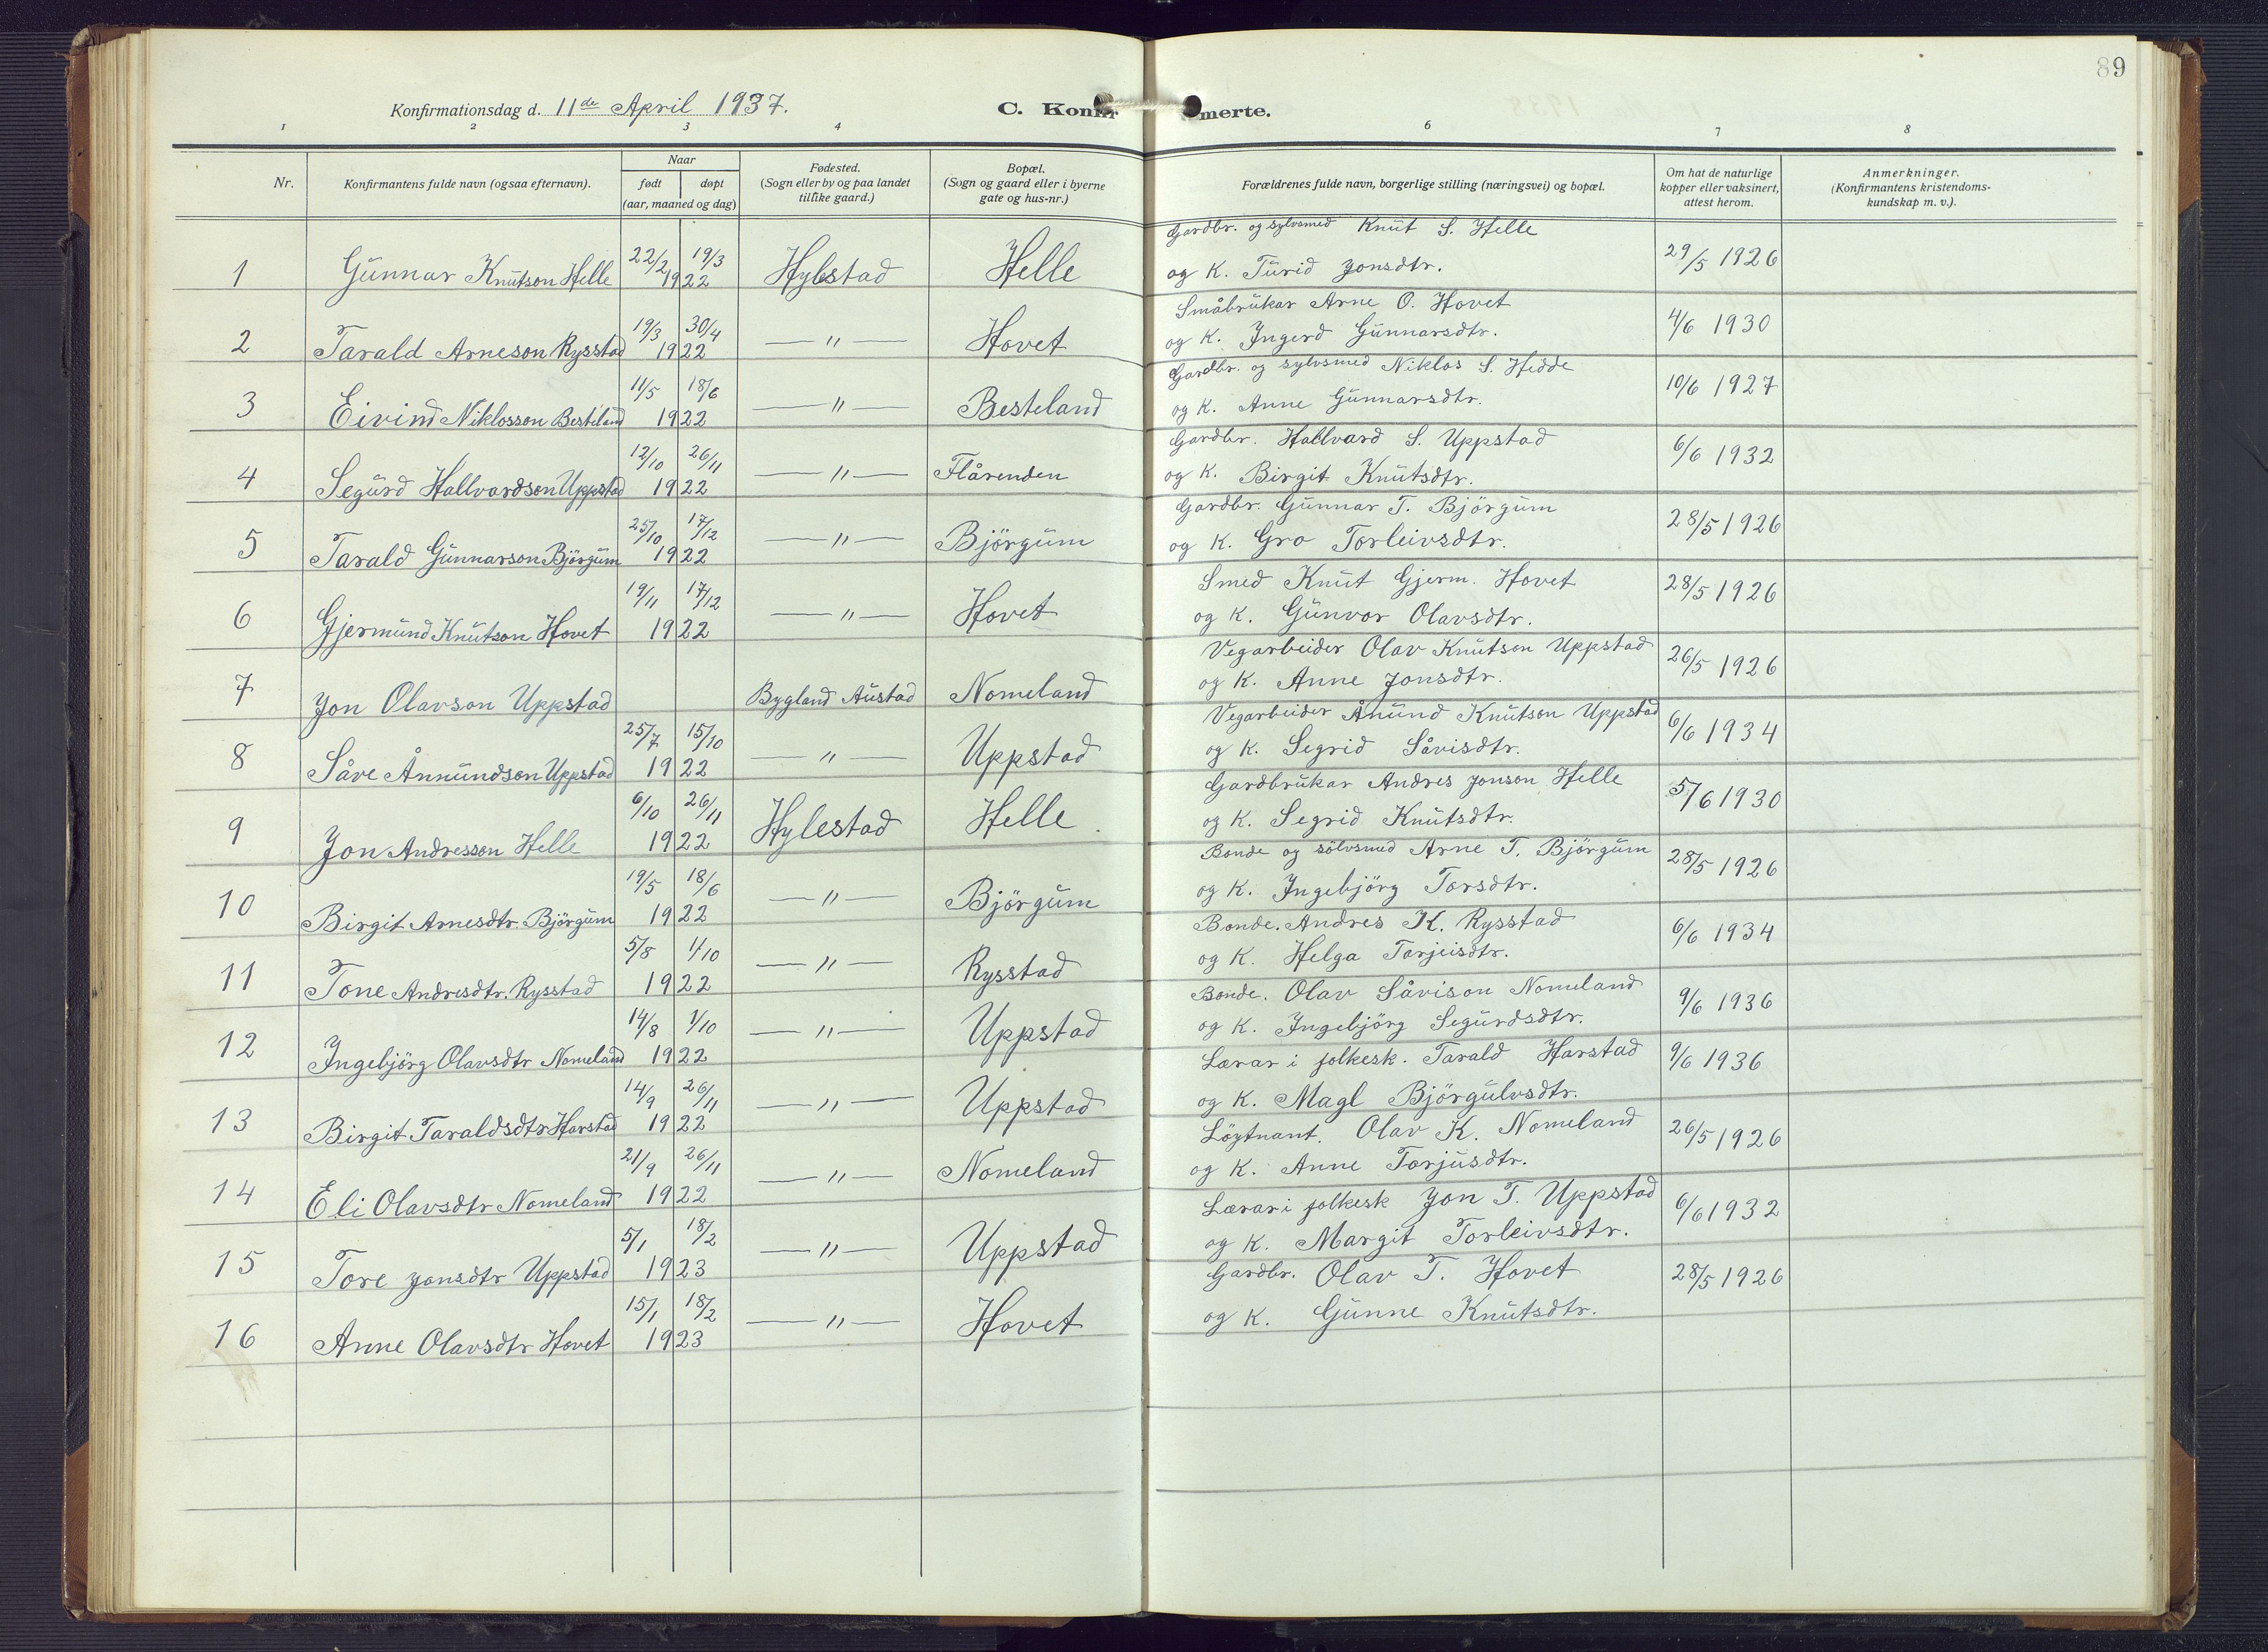 89
Konfirmationsdag d. 11de April 1937.
C. Konfirmerte.
1 2 3 4 6 7 8
Nr.
Konfirmantens fulde navn (ogsaa efternavn).
Naar
født døpt
(aar, maaned og dag)
Fødested.
(Sogn eller by og paa landet
tillike gaard.)
Bopæl.
(Sogn og gaard eller i byerne
gate og hus-nr.)
Forældrenes fulde navn, borgerlige stilling (næringsvei) og bopæl.
Om hat de naturlige
kopper eller vaksinert,
attest herom.
Anmerkninger.
(Konfirmantens kristendoms-
kundskap m. v.).
1 Gunnar Knutson Helle 22/2 19/3 1922 Hylestad Helle
Gardbr. og sylvsmed Knut S. Helle
og K. Turid Jonsdtr. 29/5 1926
2 Tarald Arneson Rysstad 19/3 30/4 1922 — " — Hovet
Småbrukar Arne O. Hovet
og K. Ingerd Gunnarsdtr. 4/6 1930
3 Eivind Niklosson Besteland 11/5 18/6 1922 — " — Besteland
Gardbr. og sylvsmed Niklos S. Hidde
og K. Anne Gunnarsdtr. 10/6 1927
4 Segurd Hallvardson Uppstad 12/10 26/11 1922 — " — Flårenden
Gardbr. Hallvard S. Uppstad
og K. Birgit Knutsdtr. 6/6 1932
5 Tarald Gunnarson Björgum 25/10 17/12 1922 — " — Björgum
Gardbr. Gunnar T. Björgum
og K. Gro Torleivsdtr. 28/5 1926
6 Gjermund Knutson Hovet 19/11 17/12 1922 — " — Hovet
Smed Knut Gjerm. Hovet
og K. Gunvor Olavsdtr. 28/5 1926
7 Jon Olavson Uppstad Bygland Austad Nomeland
Vegarbeider Olav Knutson Uppstad
og K. Anne Jonsdtr. 26/5 1926
8 Såve Ånnundson Uppstad 25/7 15/10 1922 — " — Uppstad
Vegarbeider Ånund Knutson Uppstad
og K. Segrid Såvisdtr. 6/6 1934
9 Jon Andresson Helle 6/10 26/11 1922 Hylestad Helle
Gardbrukar Andres Jonson Helle
og K. Segrid Knutsdtr. 5/6 1930
10 Birgit Arnesdtr. Björgum 19/5 18/6 1922 — " — Björgum
Bonde og sölvsmed Arne T. Björgum
og K. Ingebjörg Torsdtr. 28/5 1926
11 Tone Andresdtr. Rysstad 5/8 1/10 1922 — " — Rysstad
Bonde. Andres K. Rysstad
og K. Helga Tarjeisdtr. 6/6 1934
12 Ingebjörg Olavsdtr Nomeland 14/8 1/10 1922 — " — Uppstad
Bonde. Olav Såvison Nomeland
og K. Ingebjörg Segurdsdtr. 9/6 1936
13 Birgit Taraldsdtr Harstad 14/9 26/11 1922 — " — Uppstad
Lærar i folkesk. Tarald Harstad
og K. Magl Björgulvsdtr. 9/6 1936
14 Eli Olavsdtr Nomeland 21/9 26/11 1922 — " — Nomeland
Löytnant. Olav K. Nomeland
og K. Anne Torjusdtr. 26/5 1926
15 Tore Jonsdtr Uppstad 5/1 18/2 1923 — " — Uppstad
Lærar i folkesk Jon T. Uppstad
og K. Margit Torleivsdtr. 6/6 1932
16 Anne Olavsdtr Hovet 15/1 18/2 1923 — " — Hovet
Gardbr. Olav T. Hovet
og K. Gunne Knutsdtr. 28/5 1926